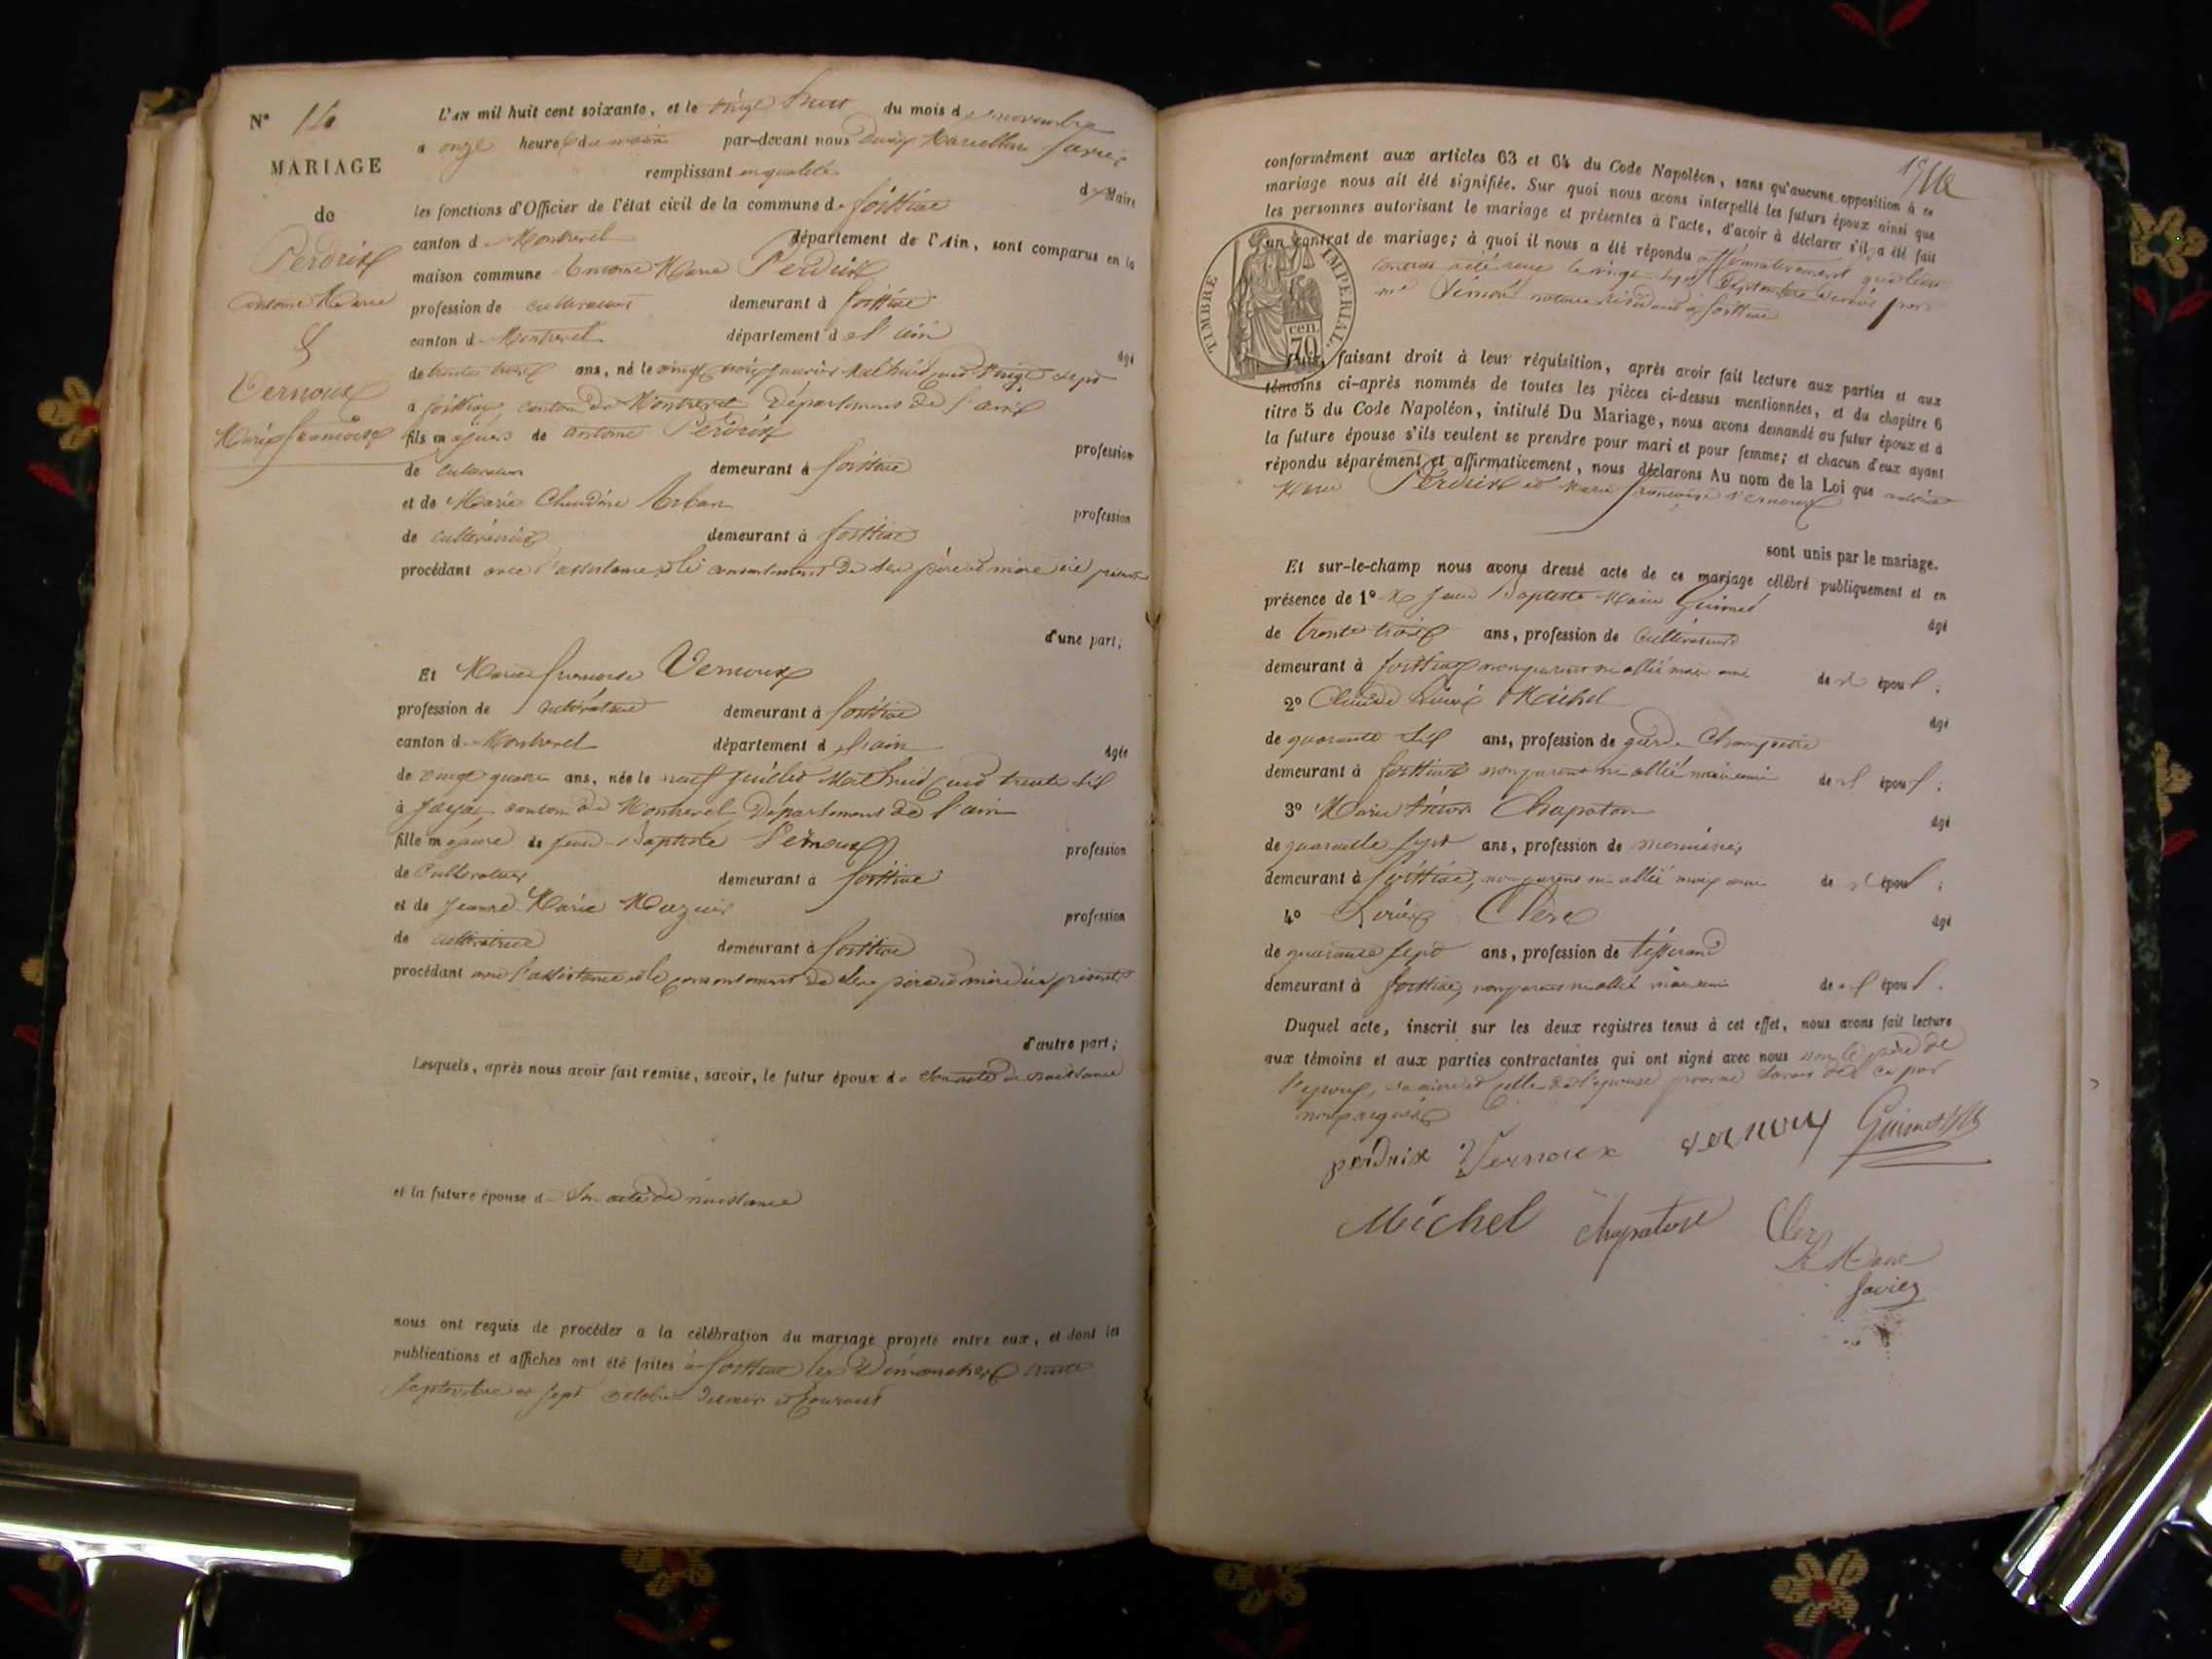 N° 14
MARIAGE
de
Perdrix
antoine Marie
&
Vernoux
Marie françoise
L'AN mil huit cent soixante, et le vingt huit du mois de novembre
à onze heures du matin par-devant nous Marcellin favier
remplissant en qualité de Maire
les fonctions d'Officier de l'état civil de la commune de foissiat
canton de Montrevel département de l'Ain, sont comparus en la
maison commune Antoine Marie Perdrix
profession de cultivateur demeurant à foissiat
canton de Montrevel département de l'ain âgé
de trente trois ans, né le vingt trois janvier mil huit cent vingt sept
à foissiat, canton de Montrevel Département de l'ain
fils majeur de antoine Perdrix profession
de cultivateur demeurant à foissiat
et de Marie Claudine profession
de cultivatrice demeurant à foissiat
procédant avec l'assistance et le consentement de ses père et mère ici présents
d'une part;
Et Marie françoise Vernoux
profession de cultivatrice demeurant à foissiat
canton de Montrevel département de l'ain âgée
de vingt quatre ans, née le neuf juillet mil huit cent trente six
à jayat canton de Montrevel Département de l'ain
fille majeure de jean-Baptiste Vernoux profession
de Cultivateur demeurant à foissiat
et de jeanne Marie profession
de cultivatrice demeurant à foissiat
procédant avec l'assistance et le consentement de ses père et mère ici présents
d'autre part;
Lesquels, après nous avoir fait remise, savoir, le futur époux de son acte de naissance
et la future épouse de son acte de naissance
nous ont requis de procéder à la célébration du mariage projeté entre eux, et dont les
publications et affiches ont été faites à foissiat les Dimanches trente
septembre et sept octobre dernier et courant
conformément aux articles 63 et 64 du Code Napoléon, sans qu'aucune opposition à ce
mariage nous ait été signifiée. Sur quoi nous avons interpellé les futurs époux ainsi que
les personnes autorisant le mariage et présentes à l'acte, d'avoir à déclarer s'il a été fait
un contrat de mariage; à quoi il nous a été répondu affirmativement que leur
contrat a été reçu le vingt sept Septembre dernier par
me notaire résidant à foissiat
TIMBRE IMPÉRIAL.
70 cen.
Puis, faisant droit à leur réquisition, après avoir fait lecture aux parties et aux
témoins ci-après nommés de toutes les pièces ci-dessus mentionnées, et du chapitre 6
titre 5 du Code Napoléon, intitulé Du Mariage, nous avons demandé au futur époux et à
la future épouse s'ils veulent se prendre pour mari et pour femme; et chacun d'eux ayant
répondu séparément et affirmativement, nous déclarons Au nom de la Loi que antoine
Marie Perdrix et Marie françoise Vernoux
sont unis par le mariage.
Et sur-le-champ nous avons dressé acte de ce mariage célébré publiquement et en
présence de 1° jean Baptiste Marie Guimet âgé
de trente trois ans, profession de Cultivateur
demeurant à foissiat non parent ni allié mais ami de l' époux;
2° Claude Michel âgé
de quarante six ans, profession de garde Champêtre
demeurant à foissiat non parent ni allié mais ami de l' époux;
3° Marie Chapaton âgé
de quarante sept ans, profession de menuisier
demeurant à foissiat, non parent ni allié mais ami de l' époux;
4° Clerc âgé
de quarante sept ans, profession de tisserand
demeurant à foissiat, non parent ni allié mais ami de l' époux.
Duquel acte, inscrit sur les deux registres tenus à cet effet, nous avons fait lecture
aux témoins et aux parties contractantes qui ont signé avec nous non le père de
l'epoux, sa mère et celle de l'epouse pour ne savoir de ce par
nous requis
perdrix Vernoux vernoux Guimet
Michel Chapaton Clerc
Le Maire
favier